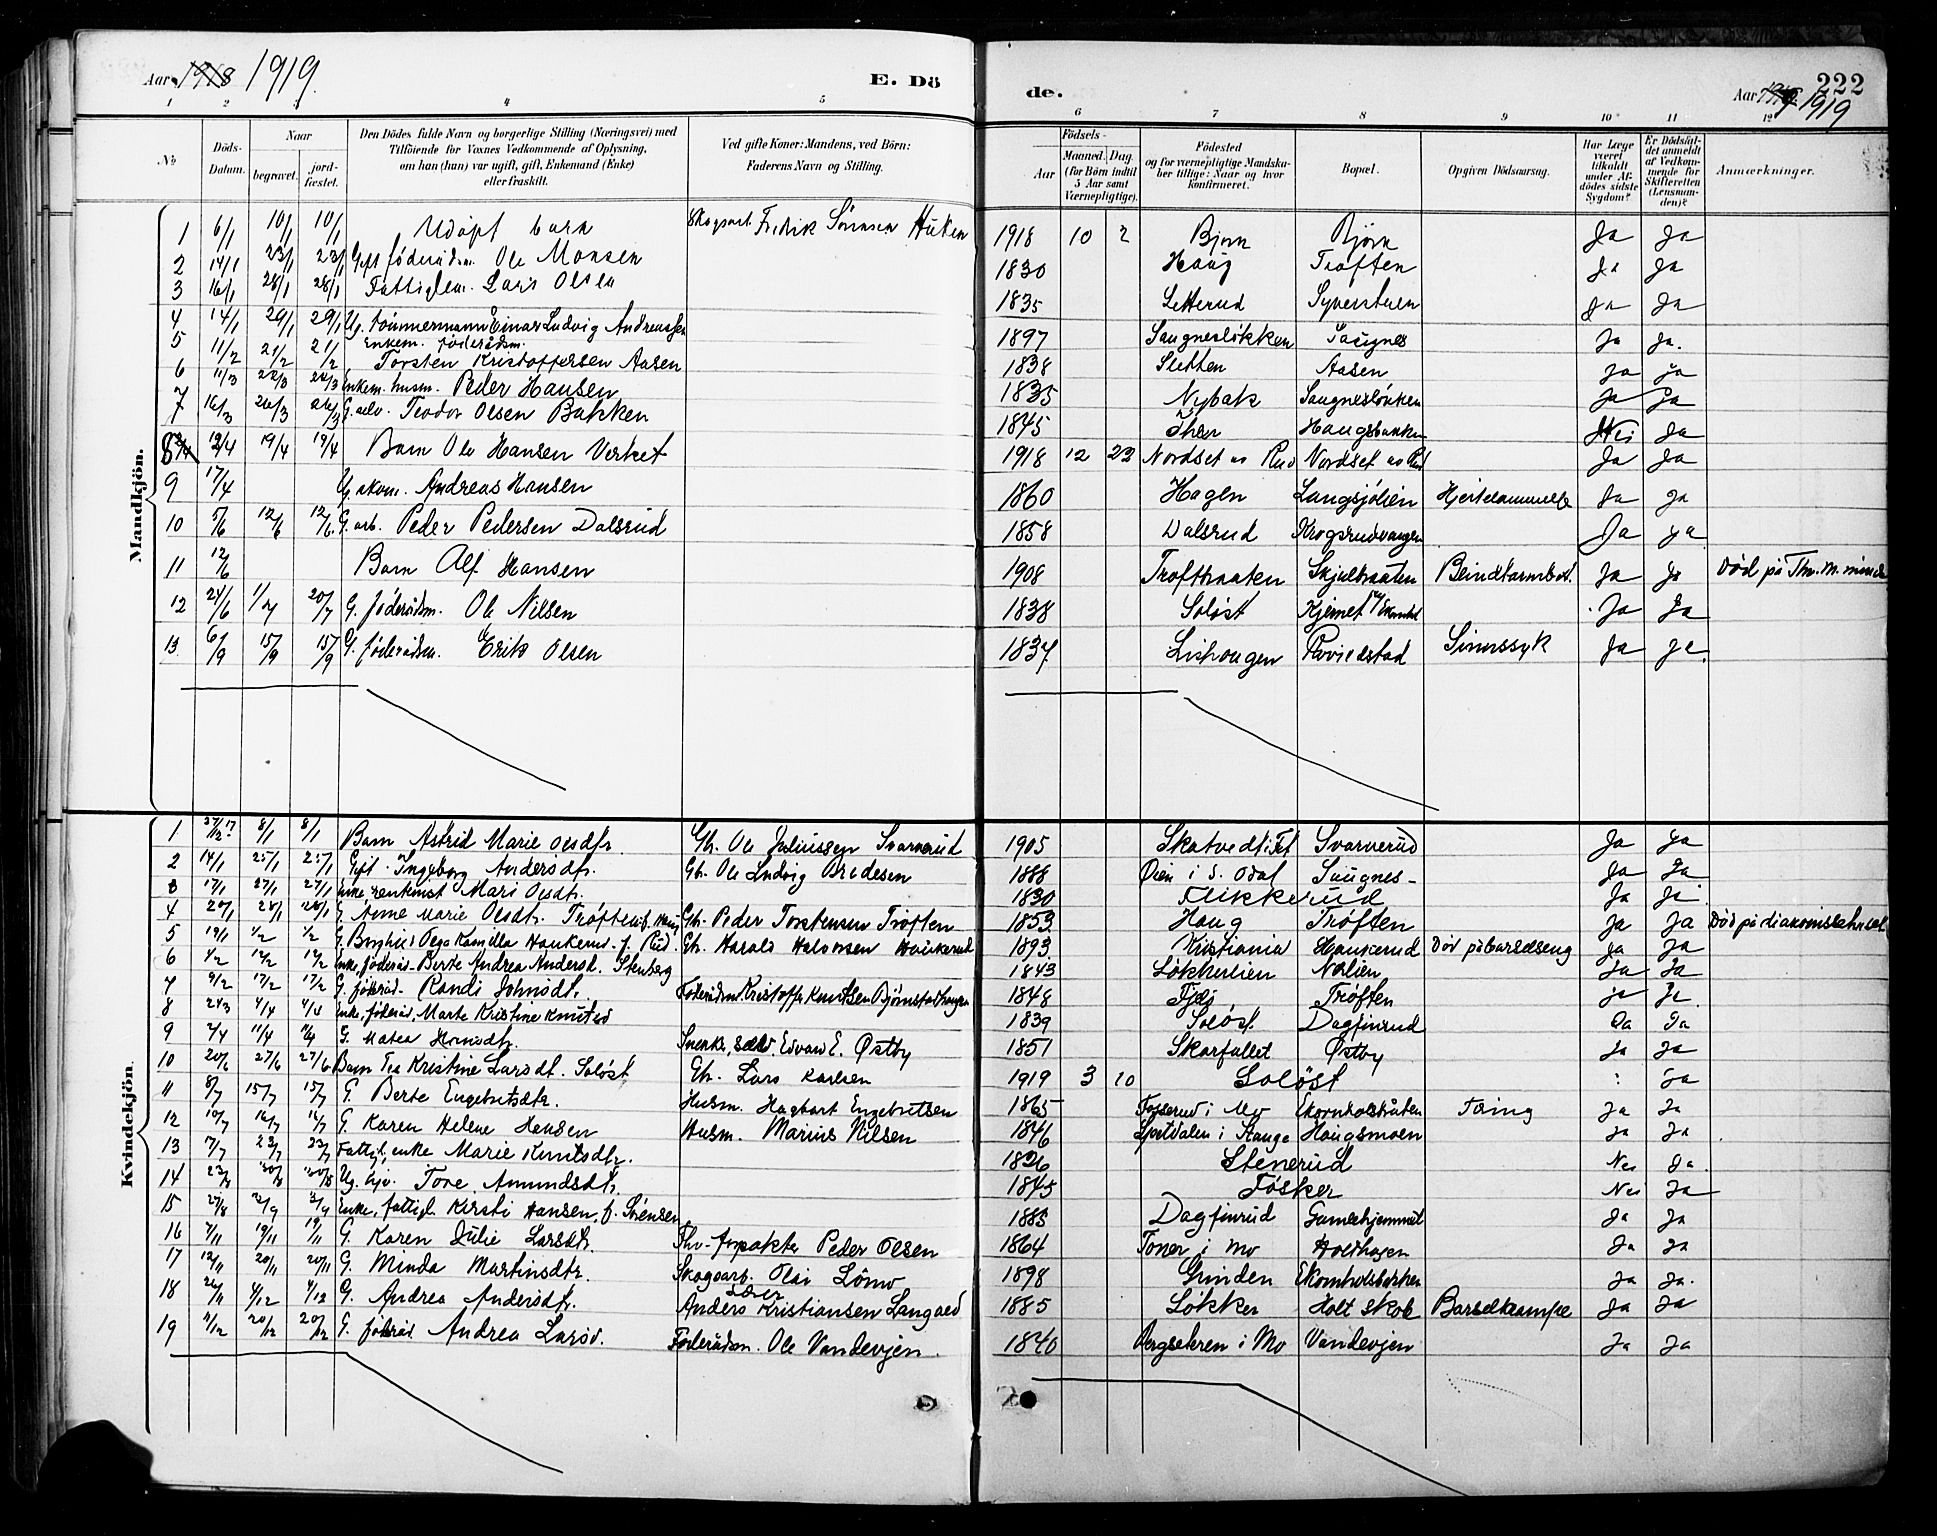 Aar 1918 1919.
E. Döde.
Aar 1919
222
1 2 3 4 5 6 7 8 9 10 11 12
No
Döds-Datum.
Naar begravet. jord-fæstet.
Den Dödes fulde Navn og borgerlige Stilling (Næringsvei) med Tilföiende for Voxnes Vedkommende af Oplysning, om han (hun) var ugift, gift, Enkemand (Enke) eller fraskilt.
Ved gifte Koner: Mandens, ved Börn: Faderens Navn og Stilling.
Födsels-
Aar
Maaned. Dag. (for Börn indtil 5 Aar samt Værnepligtige).
Födested og for værnepligtige Mandskaber tillige: Naar og hvor konfirmeret.
Bopæl.
Opgiven Dödsaarsag.
Har Læge været tilkaldt under Afdödes sidste Sygdom?
Er Dödsfaldet anmeldt af Vedkommende for Skifteretten (Lensmanden)?
Anmærkninger.
Mandkjön.
1 6/1 10/1 10/1 Udöpt barn Skogsarb. Fredrik Sörensen Huken 1918 10 2 Björn Björn Ja Ja
2 14/1 23/1 23/1 Gift föderådsm. Ole Monsen 1830 Haug Tröften Ja Ja
3 16/1 28/1 28/1 Fattiglem. Lars Olsen 1835 Letterud Syverstuen Ja Ja
4 14/1 29/1 29/1 Ug. tömmermann Einar Ludvig Andreassen 1897 Saugneslökken Saugnes Ja Ja.
5 11/2 21/2 21/2 Enkem. föderådsm. Torsten Kristoffersen Aasen 1838 Sletten Aasen Ja Ja
6 11/3 22/3 22/3 Enkem. husm. Peder Hansen 1835 Nybak Saugneslökken Ja Ja
7 16/3 26/3 26/3 G. selv. Teodor Olsen Bakken 1845 Haugsbakken Nei Ja
8 12/4 19/4 19/4 Barn Ole Hansen Verket 1918 12 22 Nordset Rud Nordset Ja Ja
9 17/4 Andreas Hansen 1860 Hagen Langsjölien Hjertelammelse Ja Ja
10 5/6 12/6 12/6 G. arb. Peder Pedersen Dalsrud 1858 Dalsrud Krogsrudvangen Ja Ja
11 12/6 Barn Alf Hansen 1908 Troftbraaten Skjulbraaten Blindtarmbet. Ja Ja Död på Th. M. minde
12 24/6 1/7 20/7 G. föderådsm. Ole Nilsen 1838 Solöst Ja Ja
13 6/9 15/9 15/9 G. föderådsm. Erik Olsen 1837 Lishougen Sinnssyk Ja Ja.
Kvindekjön.
1 27/12 17 8/1 8/1 Barn Astrid Marie Olsdtr. Gb. Ole Juliussen Svarverud 1905 Skatvedt i Fet Svarverud Ja Ja
2 14/1 25/1 25/1 Gift Ingeborg Andersdtr. Gb. Ole Ludvig Bredesen 1888 Öien i S. Odal Saugnes Ja Ja
3 17/1 27/1 27/1 Enke Mari Olsdtr. 1830 Flikkerud Ja Ja
4 20/1 28/1 28/1 G. Anne Marie Olsdtr. Tröften f. Haug Gb. Peder Torstensen Tröften 1853 Haug Tröften Ja Ja Död på diakonissehuset
5 19/1 1/2 1/2 G. Borghild Olga Kamilla Haukerud f. Rud. Gb. Harald Halvorsen Haukerud 1893 Kristiania Haukerud Död på barselseng Ja Ja
6 4/2 12/2 12/2 Enke, föderåd. Berte Andrea Andersd. Stenberg 1843 Lökkerlien Nolien Ja Ja
7 9/2 17/2 17/2 G. föderåd. Randi Johnsdtr. Föderådsm. Kristoffer Knutsen Björnstadhaugen 1848 Tröften Ja Ja.
8 4/4 4/4 Enke, föderåd. Marte Kristine Knutsd 1839 Solöst. Dagfinrud Ja Ja
9 7/4 11/4 11/4 G. Matea Hansdtr. Snekk, selv. Edvard E. Östby 1851 Skarfallet Östby Ja Ja
10 20/6 27/6 27/6 Barn Tea Kristine Larsdt. Solöst Gb. Lars Karlsen 1919 3 10 Solöst Ja
11 8/7 15/7 15/7 G. Berte Engebretsdtr. Husm. Hagbart Engebretsen 1865 Fosserud i Mo Ekornholsbråten Tæring Ja Ja
12 10/7 16/7 16/7 G. Karen Helene Hansen Husm. Marius Nilsen 1846 i Stange Haugsmoen Ja Ja
13 17/7 23/7 23/7 Fattigl., enke Marie Knutsdtr. 1826 Stenerud Nei Ja
14 23/8 30/8 30/8 Ug. Tore Amundsdtr. 1845 Fösker Nei Ja
15 27/8 2/9 2/9 Enke, fattigl. Kirsti Hansen, f. Sörensen 1883 Dagfinrud Gamlehjemmet Ja Ja
16 7/11 19/11 19/11 G. Karen Julie Larsdtr. Peder Olsen 1864 Toner i Mo Holthagen Ja Ja
17 12/11 20/11 20/11 G. Minda Martinsdtr. Skogsarb. Olai Lömo 1898 Grinden Ekornholsbakken Ja Ja.
18 26/11 4/12 4/12 G. Andrea Andersdtr. Lærer Anders Kristiansen Langaed 1885 Løkker Holt skole Barselkrampe Ja Ja
19 11/12 20/12 20/12 G. föderåd Andrea Larsd. Föderådsm. Ole Vandevjen. 1840 Bergseteren i Mo Vandevjen Ja Ja